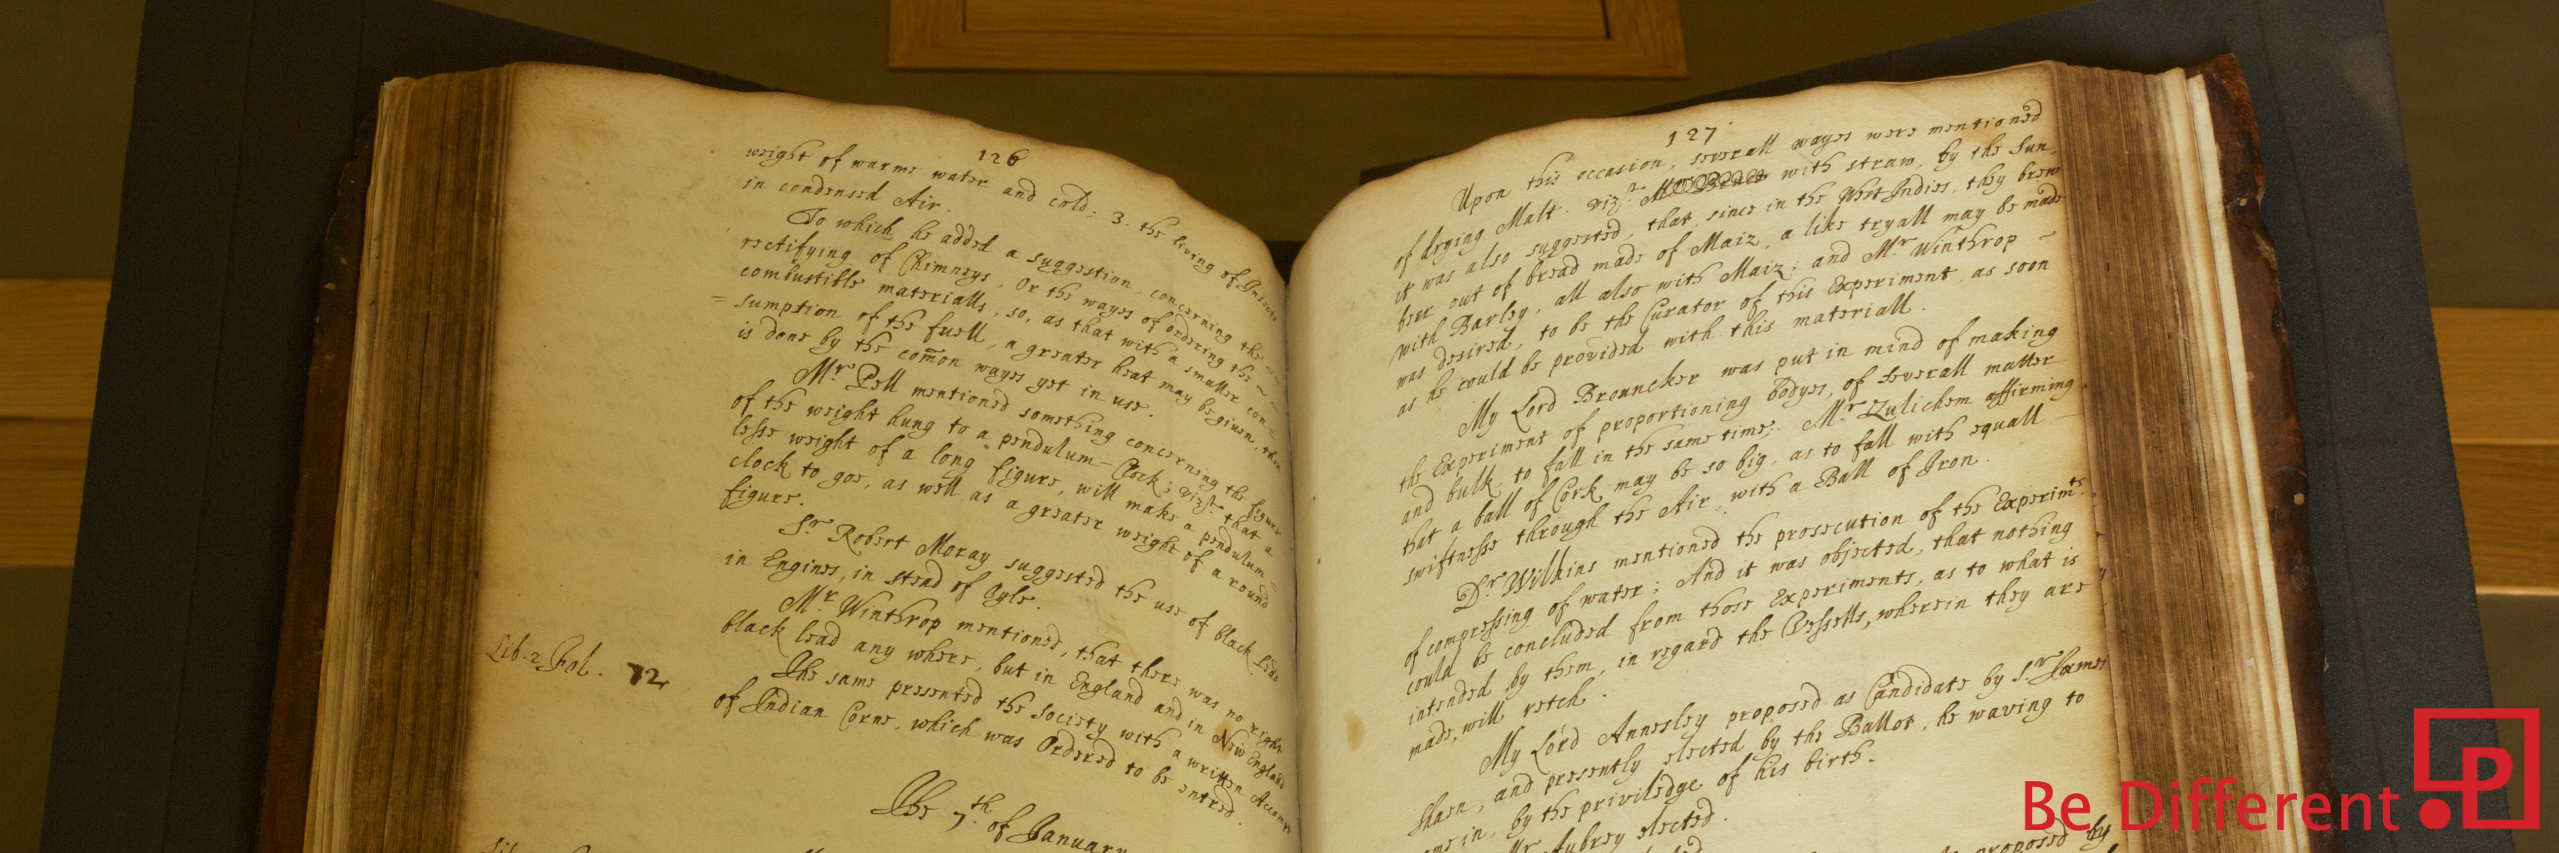 126
weight of warme water and cold; 3. the living of Insects
in condensed Air.
To which he added a suggestion, concerning the
rectifying of Chimneys, Or the wayes of ordering the
combustible materialls, so, as that with a smaller con-
=sumption of the fuell, a greater heat may be given, then
is done by the com̄on wayes yet in use.
Mr. Pell mentioned something concerning the figure
of the weight hung to a pendulum-Clock; vizt. that a
lesse weight of a long figure, will make a pendulum-
clock to goe, as well as a greater weight of a round
figure.
Sr. Robert Moray suggested the use of black Lead
in Engines, in stead of Oyle.
Mr. Winthrop mentioned, that there was no right
black lead any where, but in England and in New England
Lib. 2. Fol. 72
The same presented the Society with a written Accompt
of Indian Corne, which was Ordered to be entred.
The 7th. of January
127
Upon this occasion, severall wayes were mentioned
of drying Malt. vizt. with straw, by the Sun,
it was also suggested, that, since in the West-Indies, they brew
beer out of bread made of Maiz, a like tryall may be made
with Barley, all also with Maiz; and Mr. Winthrop
was desired, to be the Curator of this Experiment, as soon
as he could be provided with this materiall.
My Lord Brouncker was put in mind of making
the Experiment of proportioning bodyes, of severall matter
and bulk, to fall in the same time; Mr. Zulichem affirming,
that a ball of Cork may be so big, as to fall with equall
swiftnesse through the Air, with a Ball of Iron.
Dr. Wilkins mentioned the prosecution of the Experimts.
of compressing of water; And it was objected, that nothing
could be concluded from those Experiments, as to what is
intended by them, in regard the Vessells, wherein they are
made, will retch.
My Lord Annesley proposed as Candidate by Sr. James
Shaen, and presently elected by the Ballot, he waving to
come in, by the priviledge of his birth.
Mr. Aubrey elected.
proposed by
Be Different
P